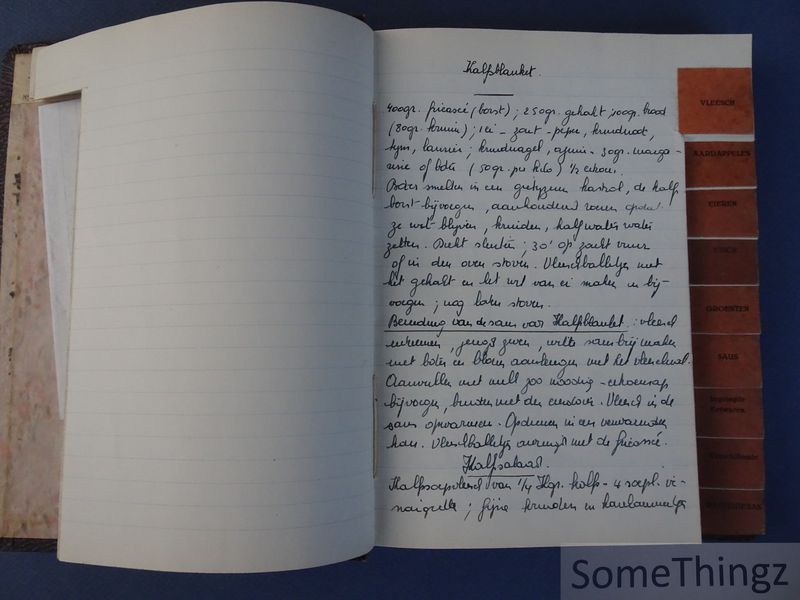 Kalfsblanket.
400gr. fricassé (borst); 250gr. gehakt; 100gr. brood
(80gr. kruim); 1 ei - zout - peper, kruidnoot,
tym, laurier; kruidnagel, ajuin - 30gr. marga-
rine of boter (50gr. per kilo) ½ citroen.
Boter smelten in een gietyzeren kastrol, de kalf
borst bijvoegen, aanhoudend roeren opdat
ze wit blijven, kruiden, half water
zetten. Dicht sluiten; 30' op zacht vuur
of in den oven stoven. Vleeschballetjes met
het gehakt en het wit van ei maken en bij-
voegen; nog laten stoven.
Bereiding van de saus voor Kalfsblanket: vleesch
uitnemen, jeugd zeven, witte saus brij maken
met boter en bloem aanlengen met het vleeschnat.
Aanvullen met melk zoo noodig - citroensap
bijvoegen, binden met den eierdooier. Vleesch in de
saus opwarmen. Opdienen in een verwarmden
kom. Vleeschballetjes gemengd met de fricassé.
Kalfsalaad.
van ¼ Kgr. kalfs - 4 soepl. vi-
naigrette; fijne kruiden en
VLEESCH
AARDAPPELEN
EIEREN
VISCH
GROENTEN
SAUS
Ingelegde
Eetwaren
Verscheidene
SomeThingz